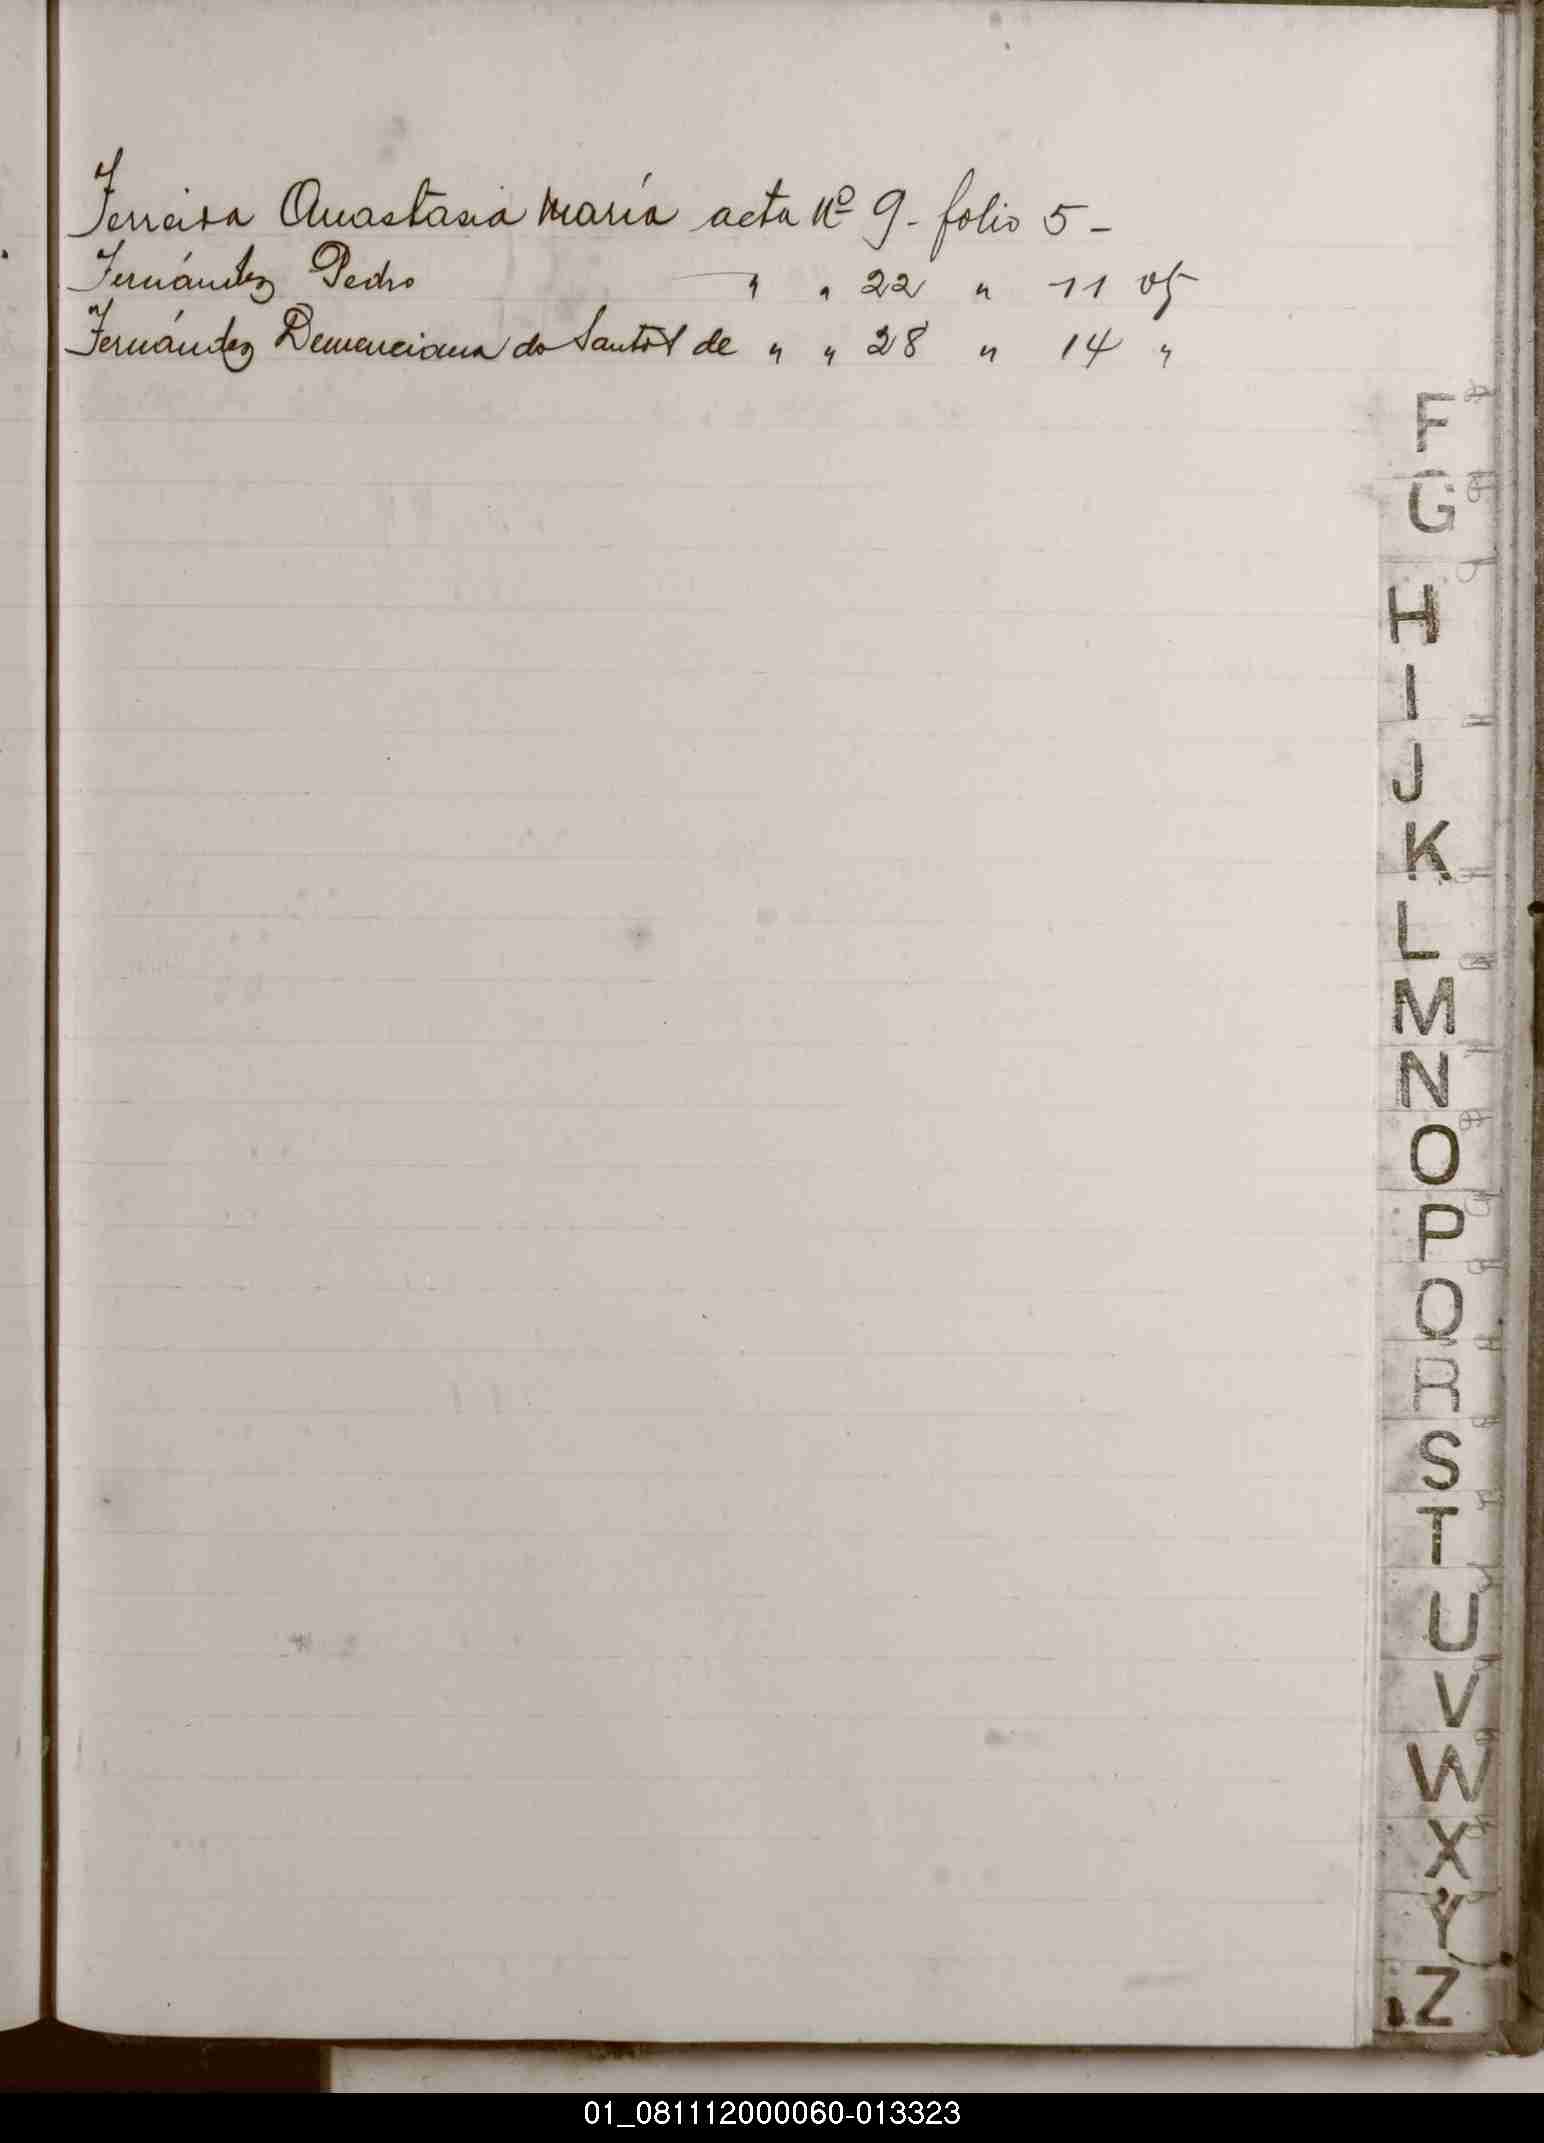 Ferreira Anastasia María acta Nº 9 - folio 5 -
Fernández Pedro " " 22 " 11 vta
Fernández Demenciana do Santos de " " 28 " 14 "
F
G
H
I
J
K
L
M
N
O
P
Q
R
S
T
U
V
W
X
Y
Z
01_081112000060-013323